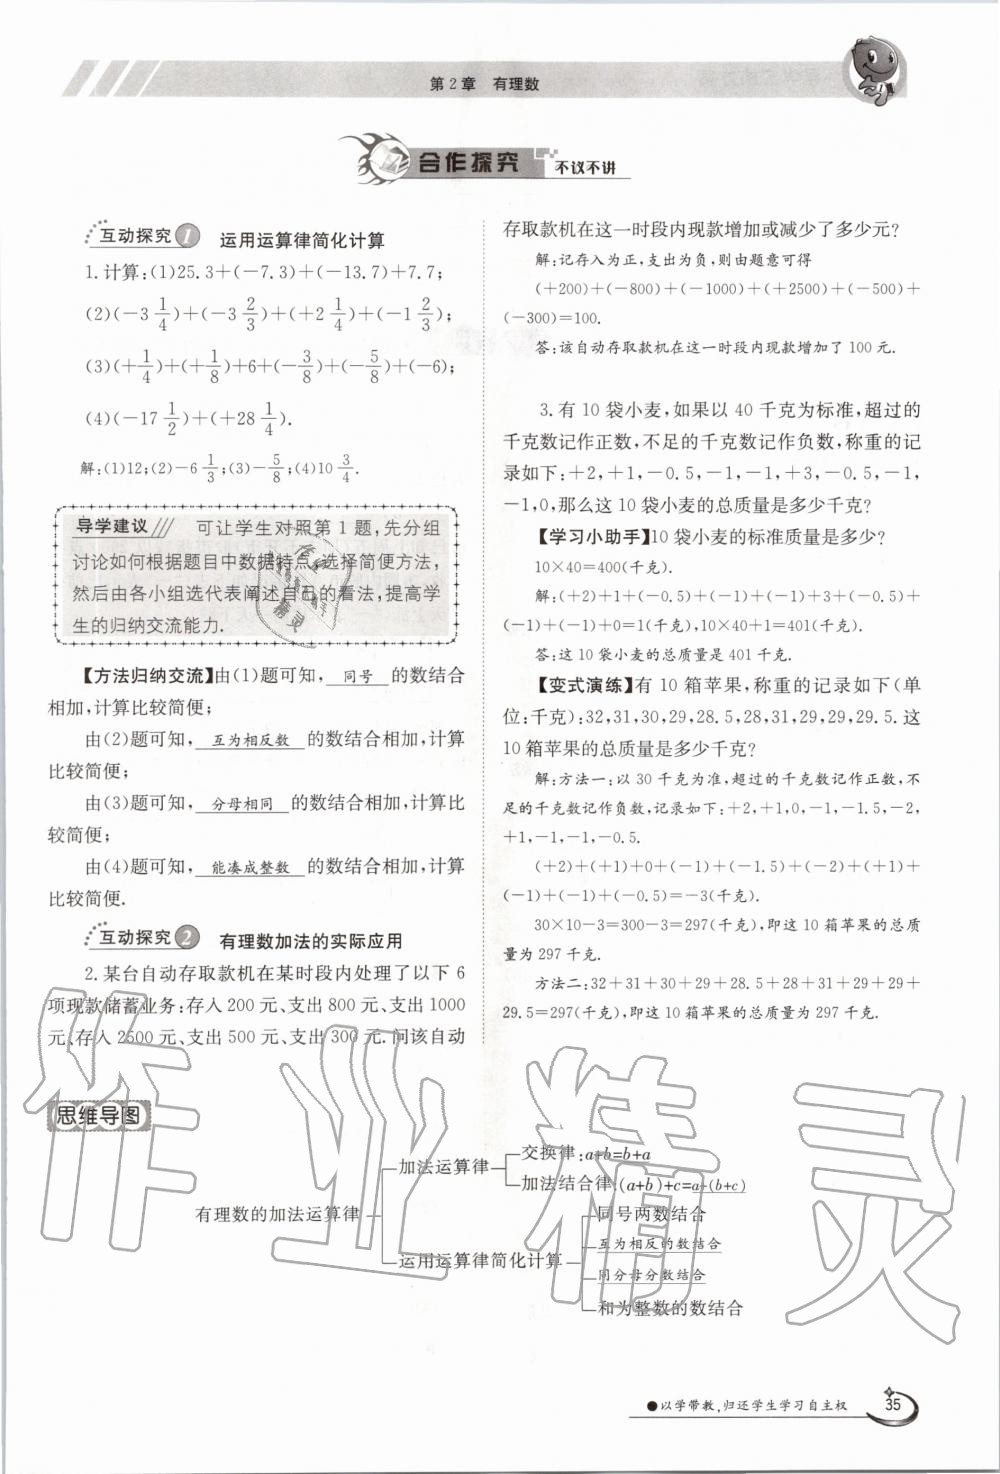 第2章 有理数
合作探究 不议不讲
互动探究1 运用运算律简化计算
1.计算:(1)25.3+(-7.3)+(-13.7)+7.7;
(2)(-3 1/4)+(-3 2/3)+(+2 1/4)+(-1 2/3);
(3)(+1/4)+(+1/8)+6+(-3/8)+(-5/8)+(-6);
(4)(-17 1/2)+(+28 1/4).
解:(1)12;(2)-6 1/3;(3)-5/8;(4)10 3/4.
导学建议 可让学生对照第1题,先分组
讨论如何根据题目中数据特点,选择简便方法,
然后由各小组选代表阐述自己的看法,提高学
生的归纳交流能力.
【方法归纳交流】由(1)题可知, 同号 的数结合
相加,计算比较简便;
由(2)题可知, 互为相反数 的数结合相加,计算
比较简便;
由(3)题可知, 分母相同 的数结合相加,计算比
较简便;
由(4)题可知, 能凑成整数 的数结合相加,计算
比较简便.
互动探究2 有理数加法的实际应用
2.某台自动存取款机在某时段内处理了以下6
项现款储蓄业务:存入200元、支出800元、支出1000
元、存入2500元、支出500元、支出300元.问该自动
存取款机在这一时段内现款增加或减少了多少元?
解:记存入为正,支出为负,则由题意可得
(+200)+(-800)+(-1000)+(+2500)+(-500)+
(-300)=100.
答:该自动存取款机在这一时段内现款增加了100元.
3.有10袋小麦,如果以40千克为标准,超过的
千克数记作正数,不足的千克数记作负数,称重的记
录如下:+2,+1,-0.5,-1,-1,+3,-0.5,-1,
-1,0,那么这10袋小麦的总质量是多少千克?
【学习小助手】10袋小麦的标准质量是多少?
10×40=400(千克).
解:(+2)+1+(-0.5)+(-1)+(-1)+3+(-0.5)+
(-1)+(-1)+0=1(千克),10×40+1=401(千克).
答:这10袋小麦的总质量是401千克.
【变式演练】有10箱苹果,称重的记录如下(单
位:千克):32,31,30,29,28.5,28,31,29,29,29.5.这
10箱苹果的总质量是多少千克?
解:方法一:以30千克为准,超过的千克数记作正数,不
足的千克数记作负数,记录如下:+2,+1,0,-1,-1.5,-2,
+1,-1,-1,-0.5.
(+2)+(+1)+0+(-1)+(-1.5)+(-2)+(+1)+
(-1)+(-1)+(-0.5)=-3(千克).
30×10-3=300-3=297(千克),即这10箱苹果的总质
量为297千克.
方法二:32+31+30+29+28.5+28+31+29+29+
29.5=297(千克),即这10箱苹果的总质量为297千克.
思维导图
有理数的加法运算律
加法运算律
交换律:a+b=b+a
加法结合律:(a+b)+c=a+(b+c)
运用运算律简化计算
同号两数结合
互为相反的数结合
同分母分数结合
和为整数的数结合
作业精灵
●以学带教,归还学生学习自主权
35